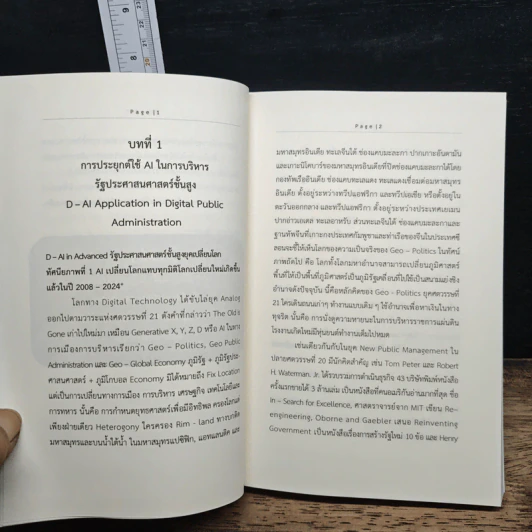 Page |1
บทที่ 1
การประยุกต์ใช้ AI ในการบริหาร
รัฐประศาสนศาสตร์ชั้นสูง
D – AI Application in Digital Public
Administration
D – AI in Advanced รัฐประศาสนศาสตร์ชั้นสูงยุคเปลี่ยนโลก
ทัศนียภาพที่ 1 AI เปลี่ยนโลกแทบทุกมิติโลกเปลี่ยนใหม่เกิดขึ้น
แล้วในปี 2008 – 2024"
โลกทาง Digital Technology ได้ขับไล่ยุค Analog
ออกไปตามวาระแห่งศตวรรษที่ 21 ดังคำที่กล่าวว่า The Old is
Gone เก่าไปใหม่มา เหมือน Generative X, Y, Z, D หรือ AI ในทาง
การเมืองการบริหารเรียกว่า Geo – Politics, Geo Public
Administration และ Geo – Global Economy ภูมิรัฐ + ภูมิรัฐประ
ศาสนศาสตร์ + ภูมิโกบอล Economy มิได้หมายถึง Fix Location
แต่เป็นการเปลี่ยนทางการเมือง การบริหาร เศรษฐกิจ เทคโนโลยีและ
การทหาร นั้นคือ การกำหนดยุทธศาสตร์เพื่อมีอิทธิพล ครองโลกแต่
เพียงฝ่ายเดียว Heterogony ใครครอง Rim - land ทางบกติด
มหาสมุทรและบนน้ำใต้น้ำ ในมหาสมุทรแปซิฟิก, แอทแลนติค และ
Page |2
มหาสมุทรอินเดีย ทะเลจีนใต้ ช่องแคบมะละกา ปากเกาะอันดามัน
และเกาะนิโคบาร์ของมหาสมุทรอินเดียที่ปิดช่องแคบมะละกาได้โดย
กองทัพเรืออินเดีย ช่องแคบทะเลแดง ทะเลแดงเชื่อมต่อมหาสมุทร
อินเดีย ตั้งอยู่ระหว่างทวีปแอฟริกา และทวีปเอเชีย หรือตั้งอยู่ใน
ตะวันออกกลาง และทวีปแอฟริกา ตั้งอยู่ระหว่างประเทศเยเมน
ปากอ่าวเอเดล ทะเลอาหรับ ส่วนทะเลจีนใต้ ช่องแคบมะละกาและ
ฐานทัพจีนที่เกาะกงประเทศกัมพูชาและท่าเรือของจีนในประเทศซี
ลอนจะชี้ให้เห็นโลกของความเป็นจริงของ Geo – Politics ในทัศนี
ภาพถัดไป คือ โลกทั้งโลกมหาอำนาจสามารถเปลี่ยนภูมิศาสตร์
พื้นที่ให้เป็นพื้นที่ภูมิศาสตร์เป็นภูมิรัฐเคลื่อนที่ไปใช้เป็นสนามแย่งชิง
อำนาจดังปัจจุบัน นี่คือหลักคิดของ Geo - Politics ยุคศตวรรษที่
21 ใครเดินถนนเก่าๆ ทำงานแบบเดิม ๆ ใช้อำนาจเพื่อหาเงินในทาง
ทุจริต นั้นคือ การนั่งดูความหายนะในการบริหารราชการแผ่นดิน
โรงงานเปิดใหม่มีหุ่นยนต์ทำงานเต็มไปหมด
เช่นเดียวกันกับในยุค New Public Management ใน
ปลายศตวรรษที่ 20 มีนักคิดสำคัญ เช่น Tom Peter และ Robert
H. Waterman. Jr. ได้รวบรวมการดำเนินธุรกิจ 43 บริษัทพิมพ์หนังสือ
ครั้งแรกขายได้ 3 ล้านเล่ม เป็นหนังสือที่คนอเมริกันอ่านมากที่สุด ชื่อ
In – Search for Excellence, ศาสตราจารย์จาก MIT เขียน Re–
engineering, Oborne and Gaebler เสนอ Reinventing
Government เป็นหนังสือเรื่องการสร้างรัฐใหม่ 10 ข้อ และ Henry